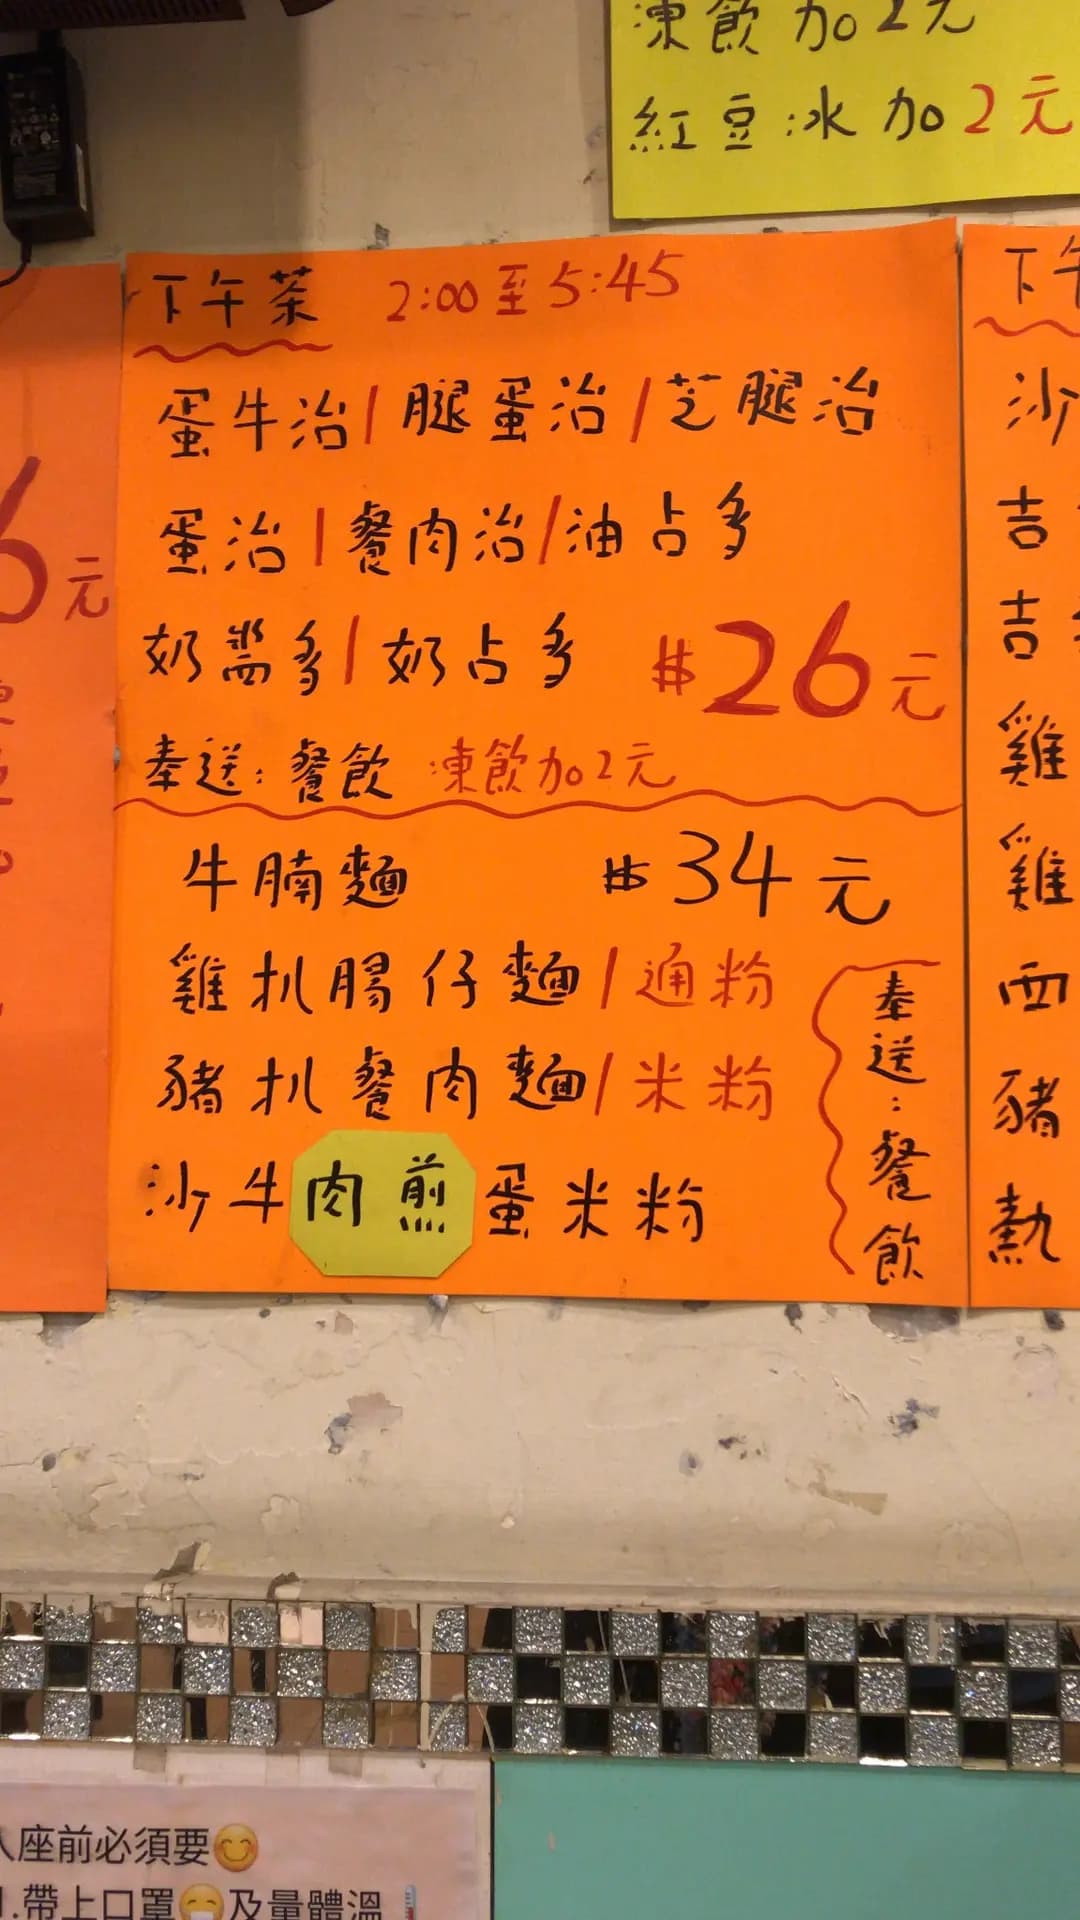 凍飲加2元
紅豆冰加2元
6元
下午茶 2:00至5:45
蛋牛治/腿蛋治/芝腿治
蛋治/餐肉治/油占多
奶醬多/奶占多 $26元
奉送:餐飲 凍飲加2元
牛腩麵 $34元
雞扒腸仔麵/通粉
豬扒餐肉麵/米粉
沙牛肉煎蛋米粉
奉送:餐飲
下午
沙
吉
吉
雞
雞
西
豬
熱
入座前必須要😊
1.帶上口罩😷及量體溫🌡